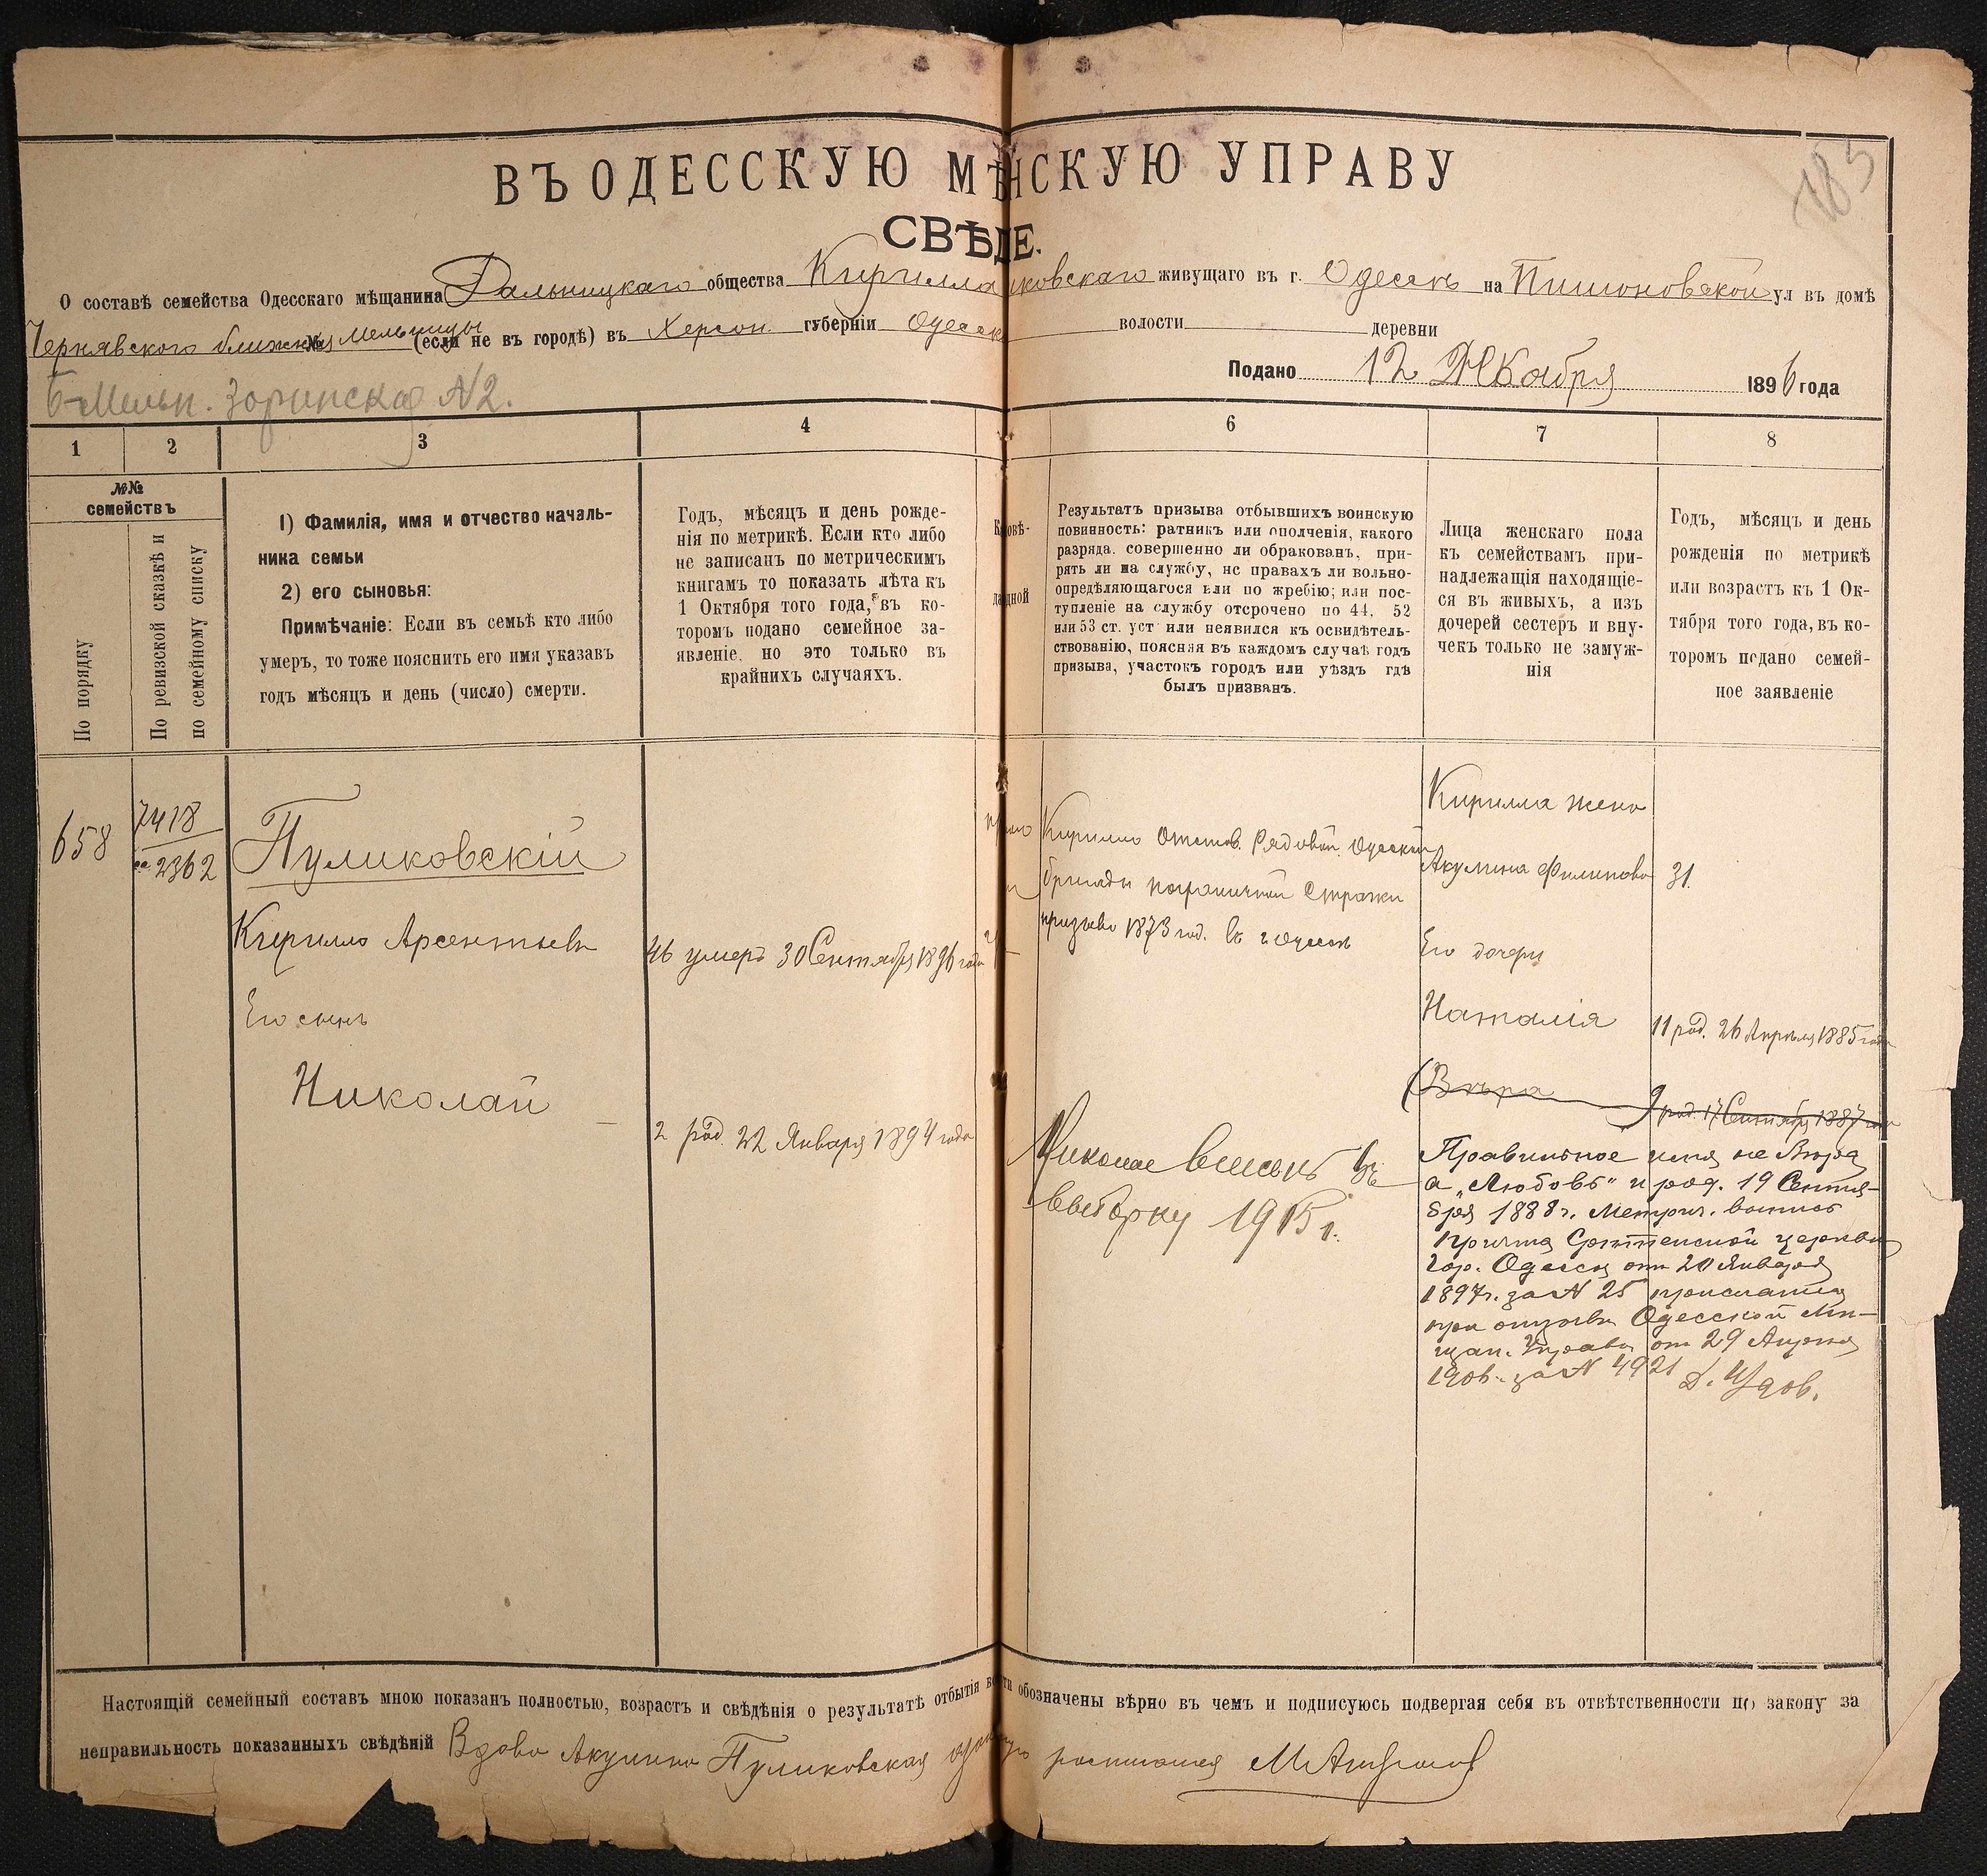 185
ВЪ ОДЕССКУЮ МѢНСКУЮ УПРАВУ
СВѢДЕ.
О составѣ семейства Одесскаго мѣщанина Дальницкаго общества Кирилла иковскаго живущаго въ г. Одессѣ на Пишоновской ул въ домѣ
Чернявского ближн. № Мельницы (если не въ городѣ) въ Херсон. губерніи Одесск волости деревни
Подано 12 Декабря 1896 года
Б-Мельн. Зоринская N2.
1 2 3 4 6 7 8
№№ семействъ
По порядку
По ревизской сказкѣ и
по семейному списку
1) Фамилія, имя и отчество началь-
ника семьи
2) его сыновья:
Примѣчаніе: Если въ семьѣ кто либо
умеръ, то тоже пояснить его имя указавъ
годъ мѣсяцъ и день (число) смерти.
Годъ, мѣсяцъ и день рожде-
нія по метрикѣ. Если кто либо
не записанъ по метрическимъ
книгамъ то показать лѣта къ
1 Октября того года, въ ко-
торомъ подано семейное за-
явленіе, но это только въ
крайнихъ случаяхъ.
Результатъ призыва отбывшихъ воинскую
повинность: ратникъ или ополченія, какого
разряда. совершенно ли обракованъ, при-
рять ли на службу, нс правахъ ли вольно-
опредѣляющагося или по жребію; или пос-
тупленіе на службу отсрочено по 44, 52
или 53 ст. уст или неявился къ освидѣтель-
ствованію, поясняя въ каждомъ случаѣ годъ
призыва, участокъ городъ или уѣздъ гдѣ
былъ призванъ.
Лица женскаго пола
къ семействамъ при-
надлежащія находящіе-
ся въ живыхъ, а изъ
дочерей сестеръ и вну-
чекъ только не замуж-
нія
Годъ, мѣсяцъ и день
рожденія по метрикѣ
или возрастъ къ 1 Ок-
тября того года, въ ко-
торомъ подано семей-
ное заявленіе
658
7418
2362
Пуликовскій
Кирилло Арсентьевъ
46 умеръ 30 Сентября 1896 года
Его сынъ
Николай
2 род. 22 Января 1894 года
Кирилло Отстав. Рядовой. Одесской
бригады пограничной Стражи
призыва 1873 год. въ г Одессѣ
Николае внесенъ въ
выборку 1915 г.
Кирилла жена
Акулина Филипова 31.
Его дочери
Наталія 11 род. 26 Апрѣля 1885 года
(Вѣра 9 род. 17 Сентября 1887 года
Правильное имя не Вѣра
а „Любовь" и род. 19 Сентя-
бря 1888 г. Метрич. выпись
причта Срѣтенской церкви
гор. Одессы от 20 Января
1897 г. за N 25 препслата
при отзывѣ Одесской Мѣ-
щан. Управы от 29 Апрѣля
1906 за N 4921
Настоящій семейный составъ мною показанъ полностью, возрастъ и свѣдѣнія о результатѣ отбытія обозначены вѣрно въ чемъ и подписуюсь подвергая себя въ отвѣтственности по закону за
неправильность показанныхъ свѣдѣній Вдова Акулина Пуликовская